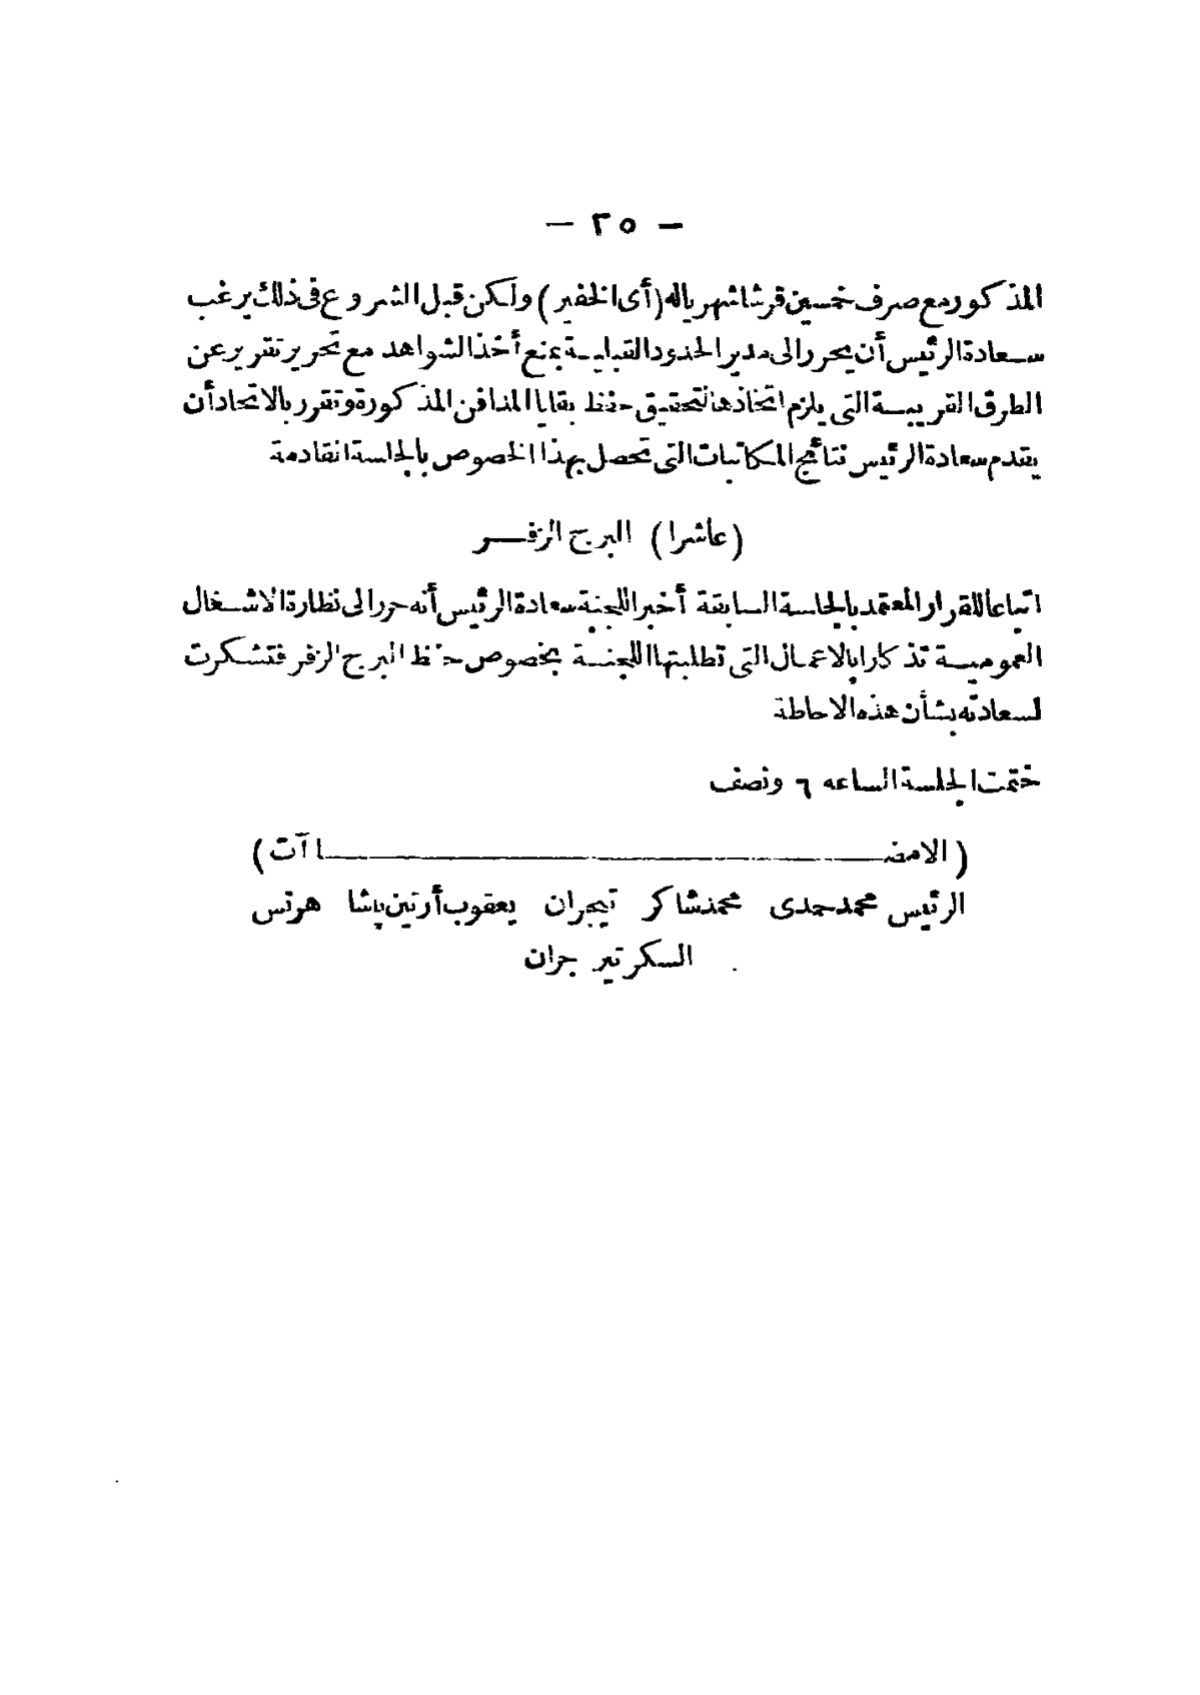 — ٢٥ —
المذكور مع صرف خمسين قرشا شهريا له (أى الخفير) ولكن قبل الشروع فى ذلك يرغب
سعادة الرئيس أن يحرر الى مدير الحدود القبلية بمنع أخذ الشواهد مع تحرير تقرير عن
الطرق القريبة التى يلزم اتخاذها لتحقيق حفظ بقايا المدافن المذكورة وتقرر بالاتحاد أن
يقدم سعادة الرئيس نتائج المكاتبات التى تحصل بهذا الخصوص بالجلسة القادمة
(عاشرا) البرج الزفر
اتباعا للقرار المعتمد بالجلسة السابقة أخبر اللجنة سعادة الرئيس أنه حرر الى نظارة الاشغال
العمومية تذكارا بالاعمال التى تطلبتها اللجنة بخصوص حفظ البرج الزفر فتشكرت
لسعادته بشأن هذه الاحاطة
ختمت الجلسة الساعه ٦ ونصف
(الامضاآت)
الرئيس محمد حمدى محمد شاكر تيجران يعقوب أرتين باشا هرتس
السكرتير جران